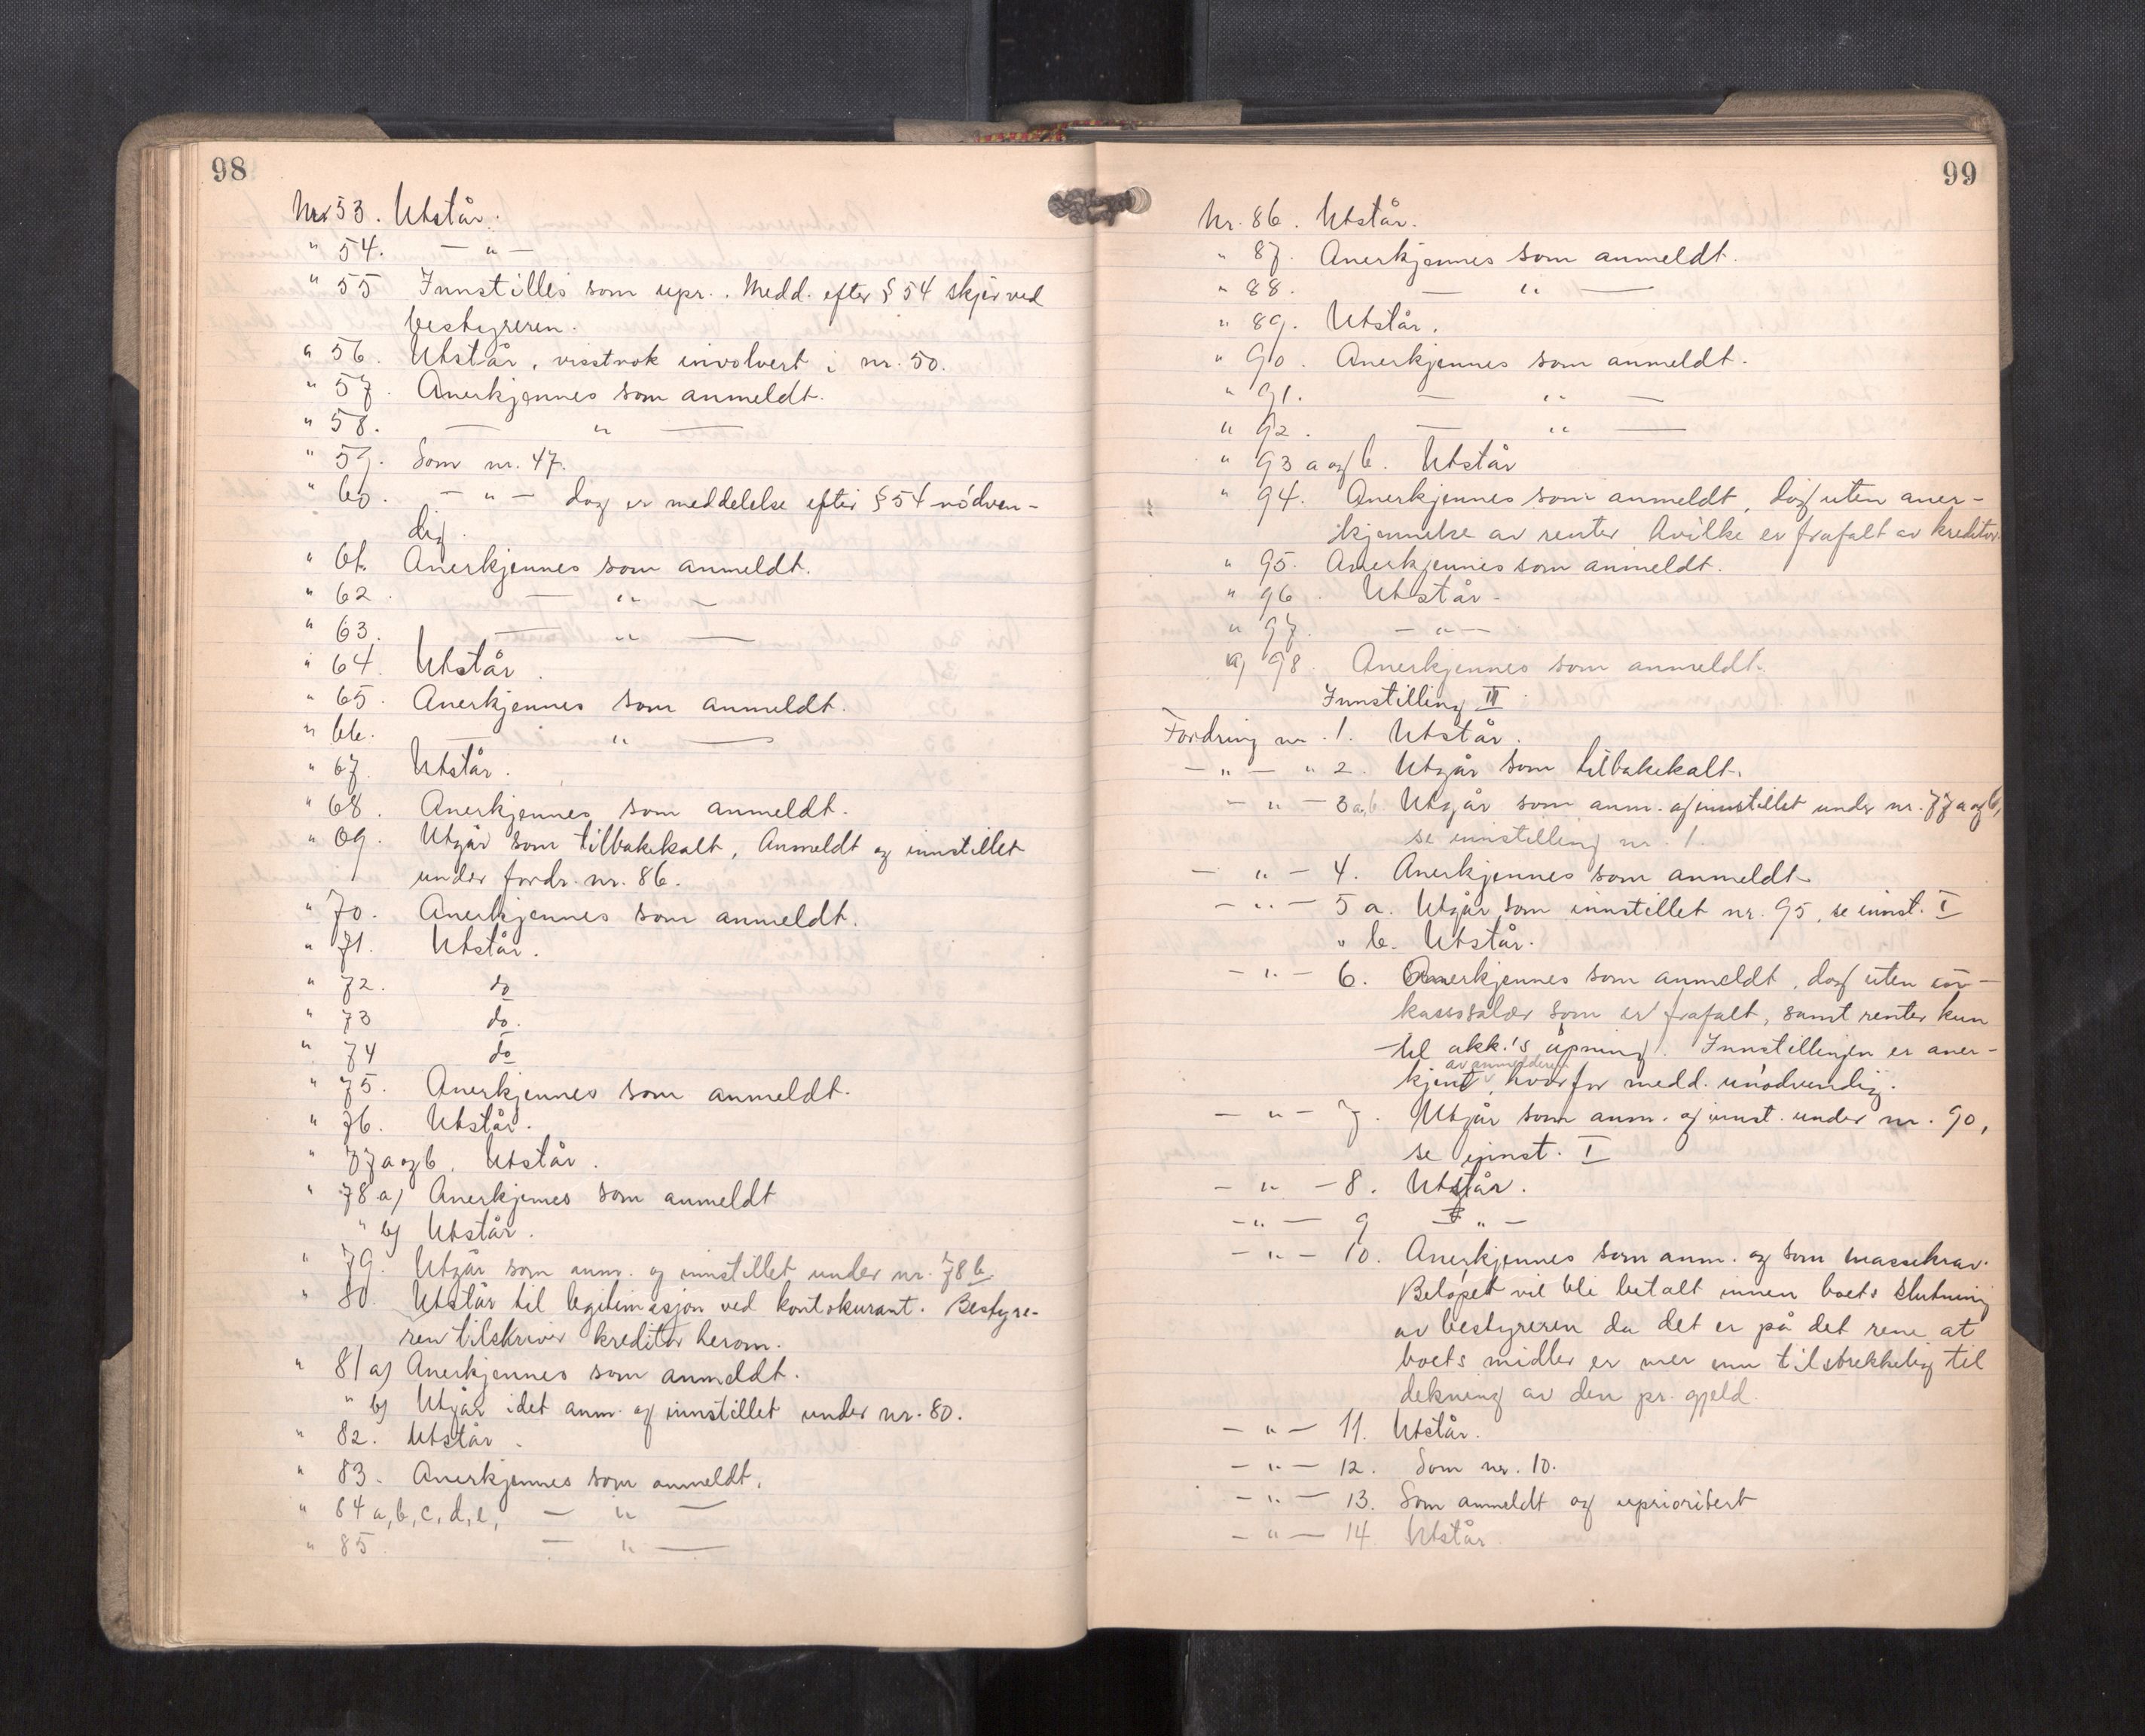 98
Nr. 53. Utstår.
" 54. — " —
" 55 Innstilles som upr.. Medd. efter § 54 skjer ved
bestyreren.
" 56. Utstår, visstnok involvert i nr. 50.
" 57. Anerkjennes som anmeldt.
" 58. — " —
" 59. Som nr. 47.
" 60. — " — dog er meddelelse efter § 54 nödven-
dig.
" 61. Anerkjennes som anmeldt.
" 62. — " —
" 63. — " —
" 64. Utstår.
" 65. Anerkjennes som anmeldt.
" 66. — " —
" 67. Utstår.
" 68. Anerkjennes som anmeldt.
" 69. Utgår som tilbakekalt, Anmeldt og innstillet
under fordr. nr. 86.
" 70. Anerkjennes som anmeldt.
" 71. Utstår.
" 72. do
" 73 do.
" 74 do
" 75. Anerkjennes som anmeldt.
" 76. Utstår.
" 77 a og b. Utstår.
" 78 a) Anerkjennes som anmeldt
" b) Utstår.
" 79. Utgår som anm. og innstillet under nr. 78 b.
" 80. Utstår til legitimasjon ved kontokurant. Bestyre-
ren tilskriver kreditor herom.
" 81 a) Anerkjennes som anmeldt.
" b) Utgår idet anm. og innstillet under nr. 80.
" 82. Utstår.
" 83. Anerkjennes som anmeldt.
" 84 a, b, c, d, e, — " —
" 85 — " —
99
Nr. 86. Utstår.
" 87. Anerkjennes som anmeldt.
" 88. — " —
" 89. Utstår.
" 90. Anerkjennes som anmeldt.
" 91. — " —
" 92. — " —
" 93 a og b. Utstår
" 94. Anerkjennes som anmeldt, dog uten aner-
kjennelse av renter hvilke er frafalt av kreditor.
" 95. Anerkjennes som anmeldt.
" 96. Utstår.
" 97. — " —
" 98. Anerkjennes som anmeldt.
Innstilling III
Fordring nr. 1. Utstår.
— " — " 2. Utgår som tilbakekalt.
— " — 3 a, b Utgår som anm. og innstillet under nr. 77 a og b,
se innstilling nr. 1.
— " — 4. Anerkjennes som anmeldt.
— " — 5 a. Utgår som innstillet nr. 95, se innst. I
" b. Utstår.
— " — 6. Anerkjennes som anmeldt, dog uten in-
kassosalær som er frafalt, samt renter kun
til akk.'s åpning. Innstillingen er aner-
av anmelderen
kjent, hvorfor medd. unödvendig.
— " — 7. Utgår som anm. og innst. under nr. 90,
se innst. I
— " — 8. Utstår.
— " — 9 — " —
— " — 10. Anerkjennes som anm. og som massekrav.
Beløpet vil bli betalt innen boets slutning
av bestyreren da det er på det rene at
boets midler er mer enn tilstrekkelig til
dekning av den pr. gjeld.
— " — 11. Utstår.
— " — 12. Som nr. 10.
— " — 13. Som anmeldt og uprioritert
— " — 14. Utstår.